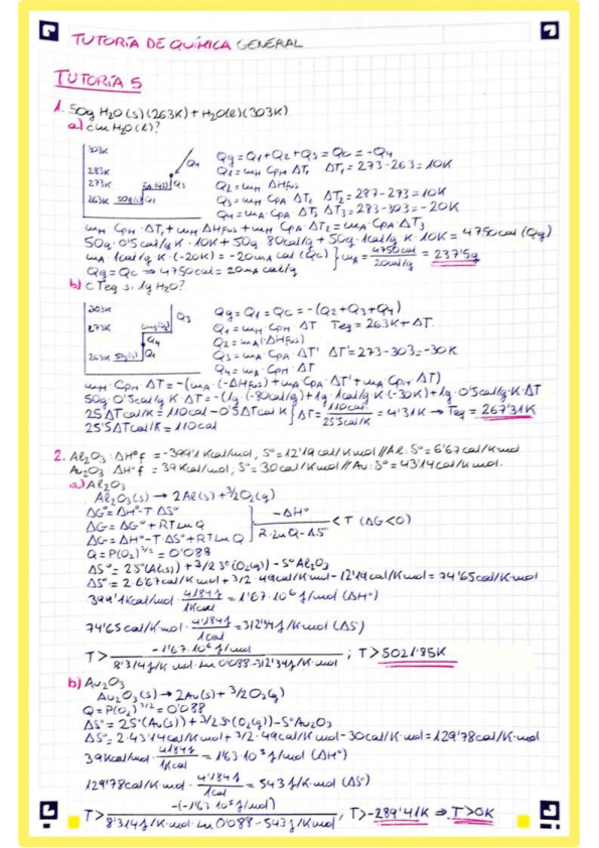 TUTORÍA DE QUÍMICA GENERAL
TUTORÍA 5
1. 50g H2O(s)(263K)+H2O(l)(303K)
a) ¿m H2O(l)?
303K
283K
273K
263K 50g(s) Q1
Q3
Q4
Qg = Q1 + Q2 + Q3 = Qc = -Q4
Q1 = mH CpH ΔT1 ΔT1 = 273-263 = 10K
Q2 = mH ΔHfus
Q3 = mH CpA ΔT2 ΔT2 = 287-273 = 10K
Q4 = mA CpA ΔT3 ΔT3 = 283-303 = -20K
mH CpH · ΔT1 + mH ΔHfus + mH CpA · ΔT2 = mA · CpA ΔT3
50g · 0'5 cal/g K · 10K + 50g · 80cal/g + 50g · 1cal/g K · 10K = 4750cal (Qg)
mA · 1cal/g K · (-20K) = -20mA cal (Qc) } mA = 4750cal / 20cal/g = 237'5g
Qg = Qc ⇒ 4750cal = 20mA cal/g
b) ¿Teq si 1g H2O?
303K
273K
263K 50g(s) Q1
Q3
Q4
Qg = Q1 = Qc = -(Q2+Q3+Q4)
Q1 = mH CpH ΔT Teq = 263K + ΔT
Q2 = mA(-ΔHfus)
Q3 = mA CpA ΔT' ΔT' = 273-303 = -30K
Q4 = mA · CpH ΔT
mH · CpH ΔT = -(mA · (-ΔHfus) + mA CpA ΔT' + mA CpH ΔT)
50g · 0'5cal/g K ΔT = -(1g · (-80cal/g) + 1g · 1cal/g K · (-30K) + 1g · 0'5cal/g K · ΔT
25 ΔTcal/K = 110cal - 0'5ΔTcal K } ΔT = 110cal / 25'5cal/K = 4'31K → Teq = 267'31K
25'5ΔTcal/K = 110cal
2. Al2O3 : ΔHºf = -399'1 Kcal/mol, Sº = 12'19 cal/Kmol // Al: Sº = 6'67cal/Kmol
Au2O3 ΔHºf = 39Kcal/mol, Sº = 30cal/Kmol // Au: Sº = 43'14cal/K mol.
a) Al2O3
Al2O3(s) → 2Al(s) + 3/2O2(g)
ΔGº = ΔHº - T ΔSº
ΔG = ΔGº + RT Ln Q
ΔG = ΔHº - T · ΔSº + RT Ln Q
-ΔHº / R · Ln Q - ΔS < T (ΔG<0)
Q = P(O2)3/2 = 0'088
ΔSº = 2Sº(Al(s)) + 3/2 Sº(O2(g)) - SºAl2O3
ΔSº = 2 · 6'67cal/K mol + 3/2 · 49cal/K mol - 12'19cal/K mol = 74'65cal/K·mol
399'1Kcal/mol · 4184J / 1Kcal = 1'67·10⁶ J/mol (ΔHº)
74'65 cal/K·mol · 4'184J / 1cal = 312'34J/K mol (ΔS)
T > -1'67·10⁶ J/mol / 8'314J/K·mol·Ln 0'088-312'34J/K·mol ; T > 5021'85K
b) Au2O3
Au2O3(s) → 2Au(s) + 3/2O2(g)
Q = P(O2)3/2 = 0'088
ΔSº = 2Sº(Au(s)) + 3/2Sº(O2(g)) - SºAu2O3
ΔSº = 2·43'14cal/K mol + 3/2 · 49cal/K mol - 30cal/K mol = 129'78cal/K·mol
39Kcal/mol · 4184J / 1Kcal = 1'63·10⁵ J/mol (ΔHº)
129'78cal/K mol · 4'184J / 1cal = 543 J/K·mol (ΔSº)
T > -(-1'63·10⁵ J/mol) / 8'314J/K·mol·Ln 0'088-543J/K·mol , T > -289'41K ⇒ T > 0K